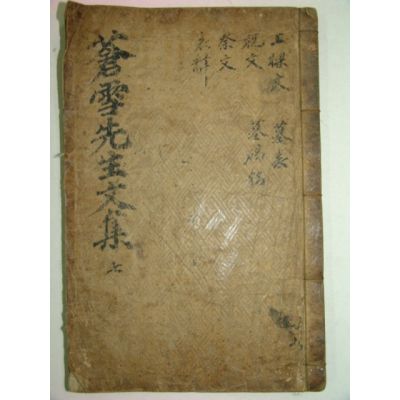 上樑文
墓表
祝文
墓碣銘
祭文
哀辭
蒼雪先生文集
七